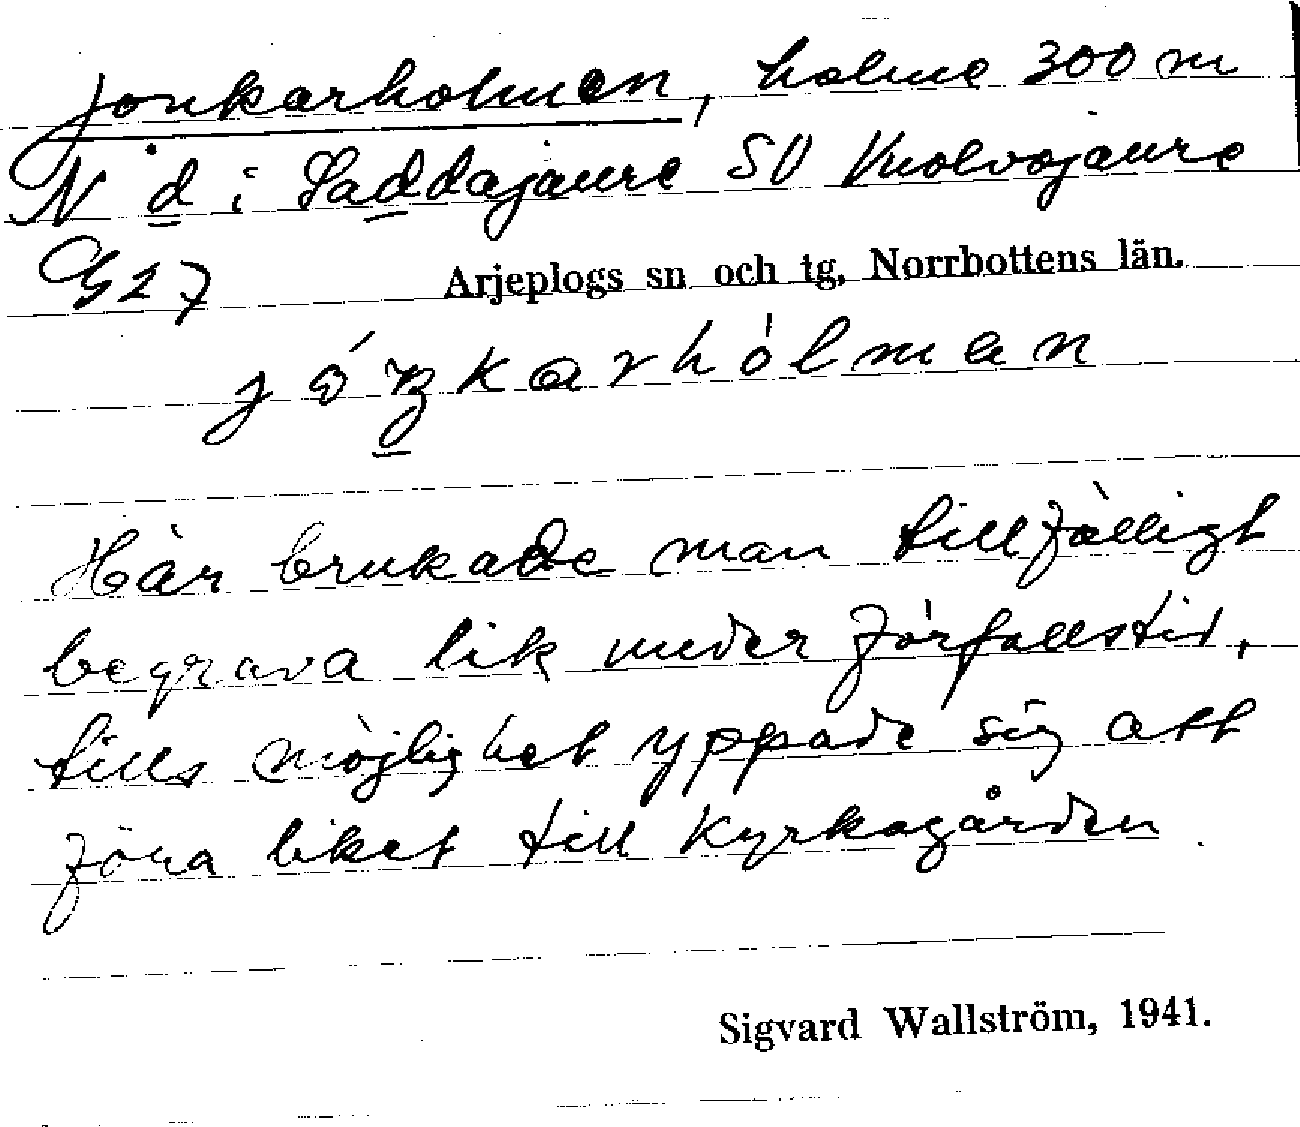 Jonkarholmen, holme 300 m
N d i Saddajaure SV Vuolvojaure
G 27 Arjeplogs sn och tg, Norrbottens län.
Här brukade man tillfälligt
begrava lik under förfallstid,
tills möjlighet yppade sig att
föra liket till kyrkogården.
Sigvard Wallström, 1941.